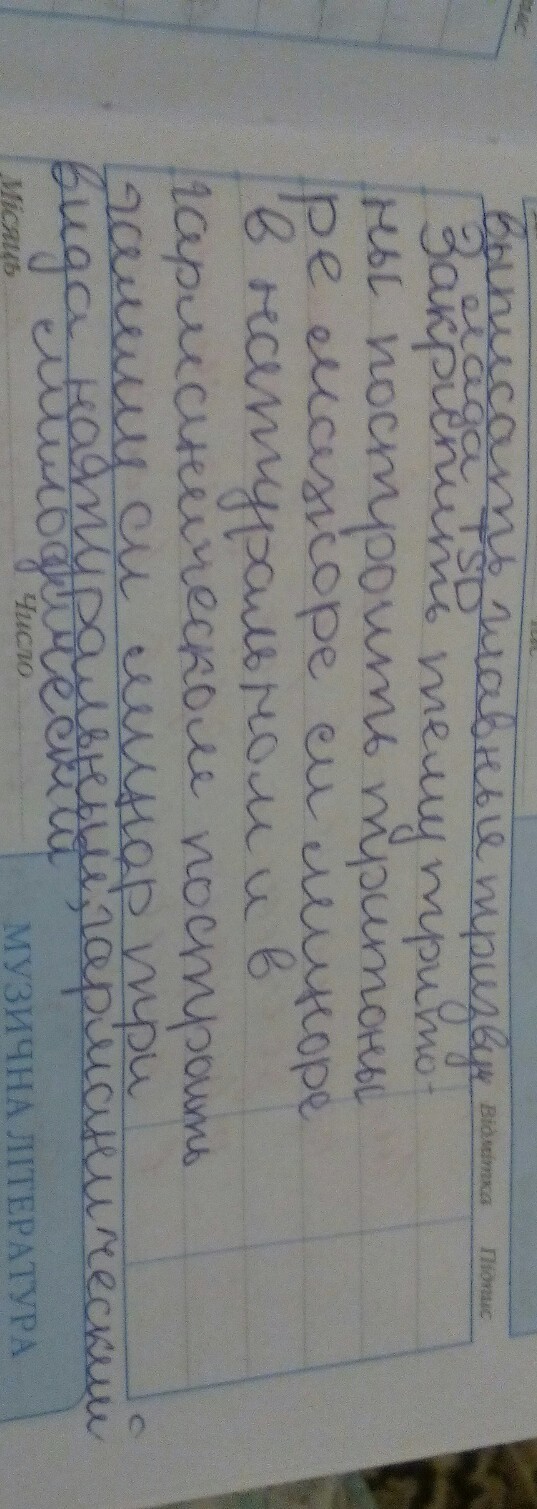 выписать главные тризвуч
лада TSD
Закрипить тему трито-
ны построить тритоны
ре мажоре си миноре
в натуральном и в
гармоническом построить
гаммы си минор три
вида натуральный, гармонический
милодический
Відмітка
Підпис
Місяць
Число
МУЗИЧНА ЛІТЕРАТУРА